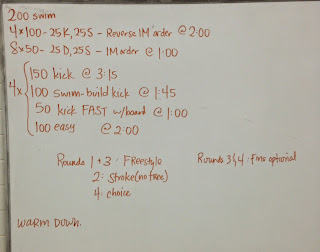 200 swim
4x100 - 25K, 25S - Reverse IM order @ 2:00
8x50 - 25D, 25S - IM order @ 1:00
4x { 150 kick @ 3:15
100 swim-build kick @ 1:45
50 kick FAST w/board @ 1:00
100 easy @ 2:00
Rounds 1+3: Freestyle
2: Stroke (no free)
4: choice
Rounds 3&4: Fins optional
WARM DOWN.